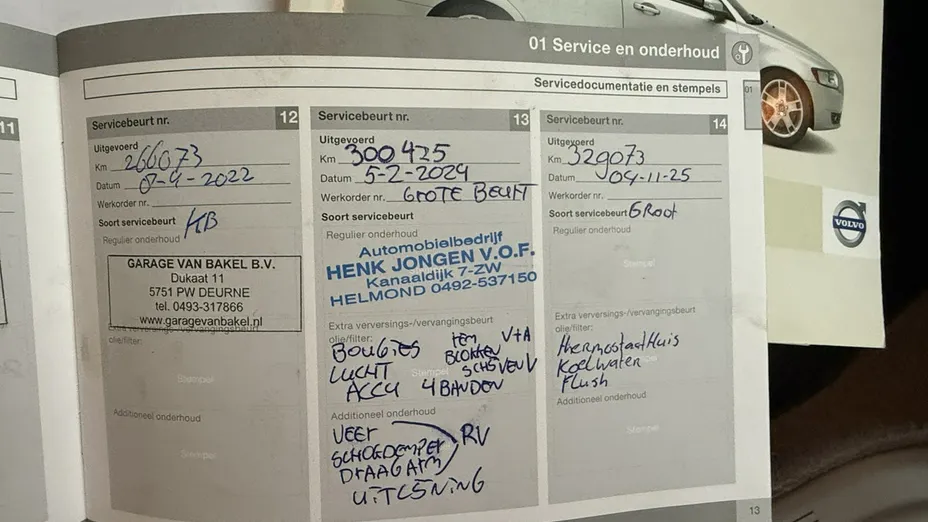 01 Service en onderhoud
Servicedocumentatie en stempels
01
11
Servicebeurt nr. 12
Uitgevoerd
Km 266073
Datum 8-4-2022
Werkorder nr.
Soort servicebeurt KB
Regulier onderhoud
GARAGE VAN BAKEL B.V.
Dukaat 11
5751 PW DEURNE
tel. 0493-317866
www.garagevanbakel.nl
Extra verversings-/vervangingsbeurt
olie/filter:
Stempel
Additioneel onderhoud
Stempel
Servicebeurt nr. 13
Uitgevoerd
Km 300425
Datum 5-2-2024
Werkorder nr. GROTE BEURT
Soort servicebeurt
Regulier onderhoud
Automobielbedrijf
HENK JONGEN V.O.F.
Kanaaldijk 7-ZW
HELMOND 0492-537150
Extra verversings-/vervangingsbeurt
olie/filter:
BOUGIES REM V+A
LUCHT BLOKKEN SCHIJVEN V
Stempel
ACCU 4 BANDEN
Additioneel onderhoud
VEER
SCHOKDEMPER RV
DRAAGARM
UITLIJNING
Servicebeurt nr. 14
Uitgevoerd
Km 329073
Datum 04-11-25
Werkorder nr.
Soort servicebeurt GROOT
Regulier onderhoud
Stempel
Extra verversings-/vervangingsbeurt
olie/filter:
thermostaatHuis
Koelwater
Flush
Additioneel onderhoud
Stempel
13
VOLVO